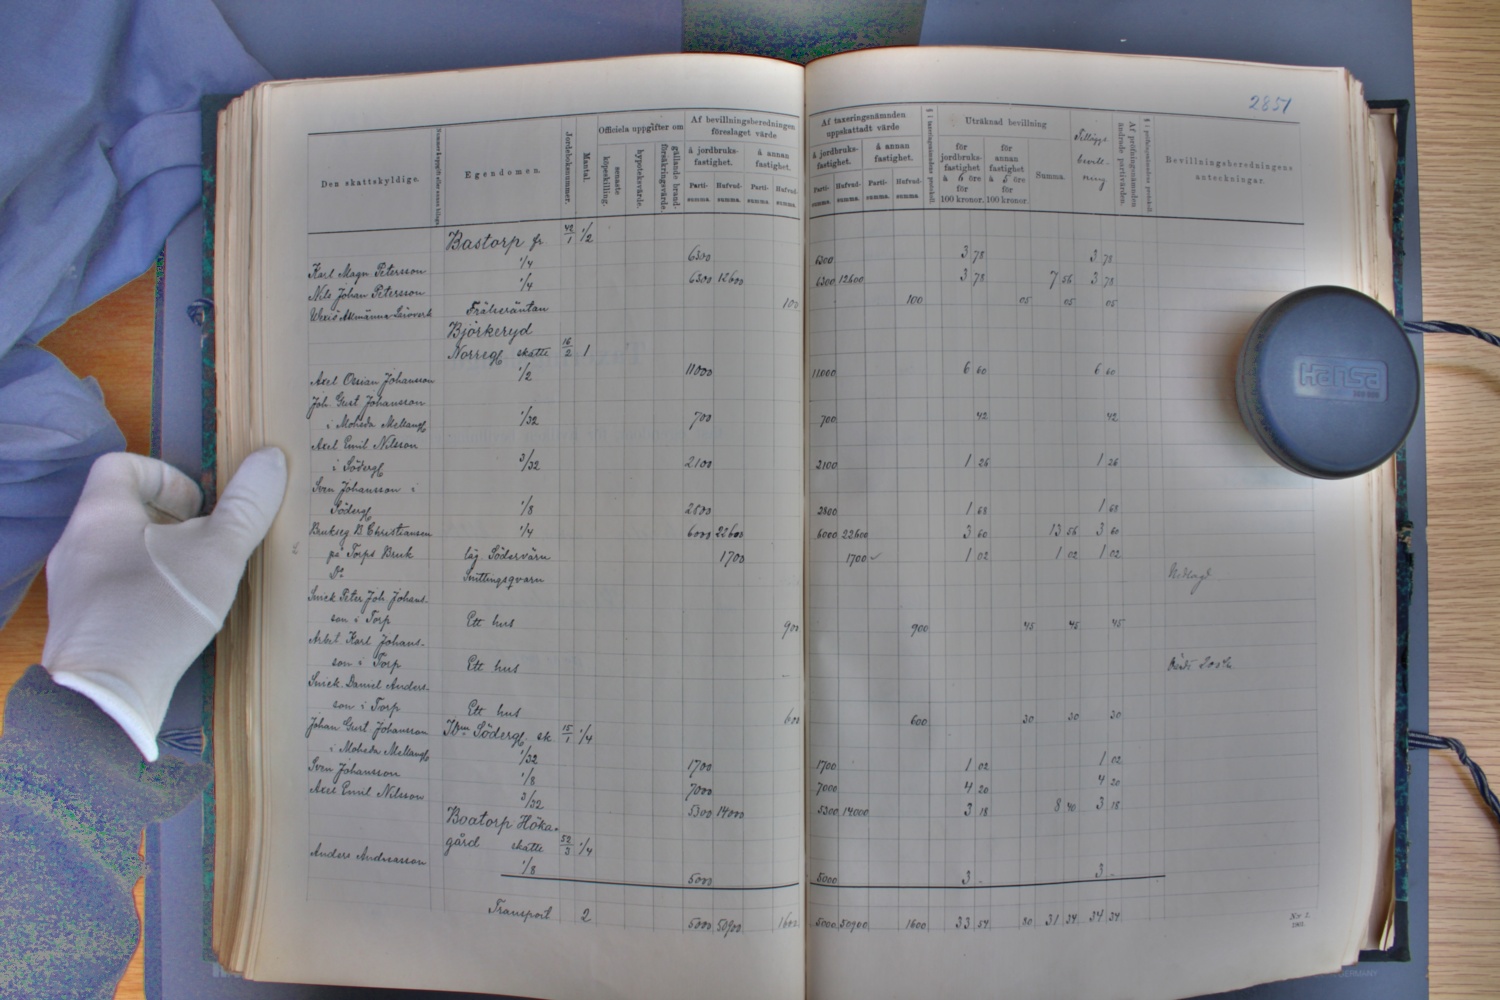 2851
Den skattskyldige.
Egendomen.
Jordeboksnummer.
Mantal.
Officiela uppgifter om
senaste köpeskilling.
hypoteksvärde.
gällande brand-försäkringsvärde.
Af bevillningsberedningen föreslaget värde
å jordbruks-fastighet.
å annan fastighet.
Parti-summa. Hufvud-summa. Parti-summa. Hufvud-summa.
Af taxeringsnämnden uppskattadt värde
å jordbruks-fastighet.
å annan fastighet.
Parti-summa. Hufvud-summa. Parti-summa. Hufvud-summa.
Uträknad bevillning
för jordbruks-fastighet à 6 öre för 100 kronor.
för annan fastighet à 5 öre för 100 kronor.
Summa.
Tilläggs bevill- ning
Af pröfningsnämnden ändrade partivärden.
Bevillningsberedningens anteckningar.
Bastorp fr. 42/1 1/2
Karl Magn Petersson 1/4 6300 6300 3 78 3 78
Nils Johan Petersson 1/4 6300 12600 6300 12600 3 78 7 56 3 78
Wexiö Allmänna Läroverk Frälseräntan 100 100 05 05 05
Björkeryd
Norregg skatte 16/2 1
Axel Ossian Johansson 1/2 11000 11000 6 60 6 60
Joh. Gust Johansson
i Moheda Mellang 1/32 700 700 42 42
Axel Emil Nilsson
i Söderg 3/32 2100 2100 1 26 1 26
Sven Johansson i
Söderg 1/8 2800 2800 1 68 1 68
Brukseg B Christiansen 1/4 6000 22600 6000 22600 3 60 13 56 3 60
på Torps Bruk läg. Södervärn 1700 1700 1 02 1 02 1 02
Do Smltingsqvarn
Snick Peter Joh. Johans-
son i Torp Ett hus 900 900 45 45 45
Arbet Karl Johans-
son i Torp Ett hus
Snick. Daniel Anders-
son i Torp Ett hus 600 600 30 30 30
Johan Gust Johansson Idm Söderg. sk 15/1 1/4
i Moheda Mellang 1/32 1700 1700 1 02 1 02
Sven Johansson 1/8 7000 7000 4 20 4 20
Axel Emil Nilsson 3/32 5300 14000 5300 14000 3 18 8 40 3 18
Boatorp Höka-
gård skatte 52/3 1/4
Anders Andreasson 1/8 5000 5000 3 - 3 -
Transport 2 5000 50900 1600 5000 50900 1600 33 54 80 31 34 34 34
Hansa